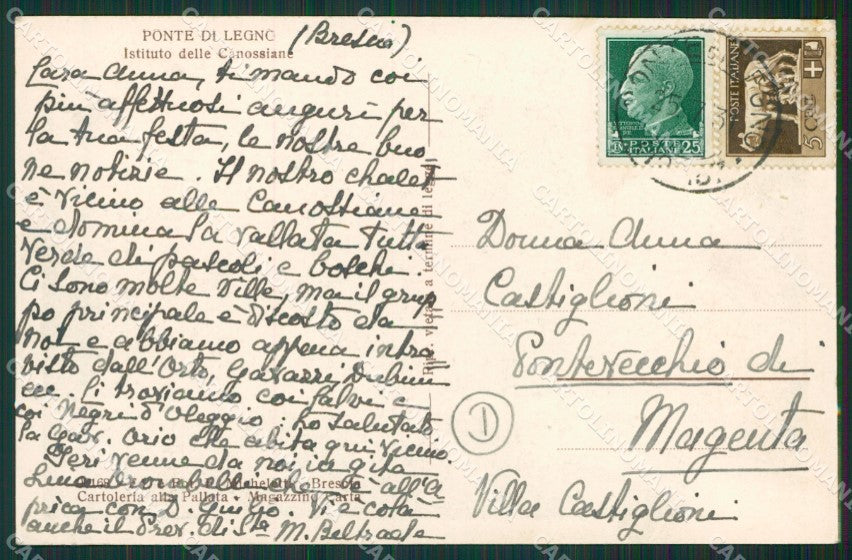 PONTE DI LEGNO
(Brescia)
Istituto delle Canossiane
Cara Anna, ti mando coi
più affettuosi auguri per
la tua festa, le nostre buo
ne notizie. Il nostro chalet
è vicino alle Canossiane
e domina la vallata tutta
verde di pascoli e boschi.
Ci sono molte ville, ma il grup
po principale è discosto da
noi e abbiamo appena intra
visto dall'Orto, Gavazzi
ecc. Ci troviamo coi Salvi e
coi Negri d'Oleggio. Ho salutato
la Gav. Orio che abita qui vicino.
Ieri venne da noi in gita
che è all'A
prica con D. Giulio. Vi è colà
anche il Prev. di Sta M. Beltrade
Brescia
Cartoleria alla Pallata - Magazzino Carta
Ripr. vietata a termine di legge
POSTE ITALIANE
25
POSTE ITALIANE
5 CENT
Donna Anna
Castiglioni
Pontevecchio di
Magenta
Villa Castiglioni
1
CARTOLINOMANIA